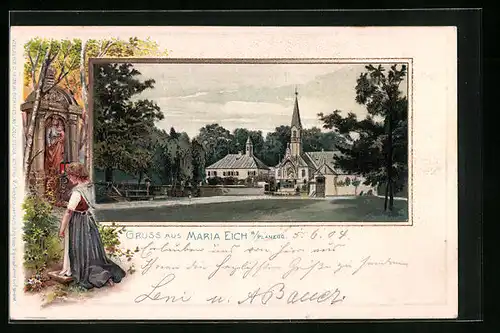 GRUSS AUS MARIA EICH B/PLANEGG. 5.6.04
Erlauben uns von hier aus
Ihnen die herzlichsten Grüße zu senden
Leni u. A Bauer